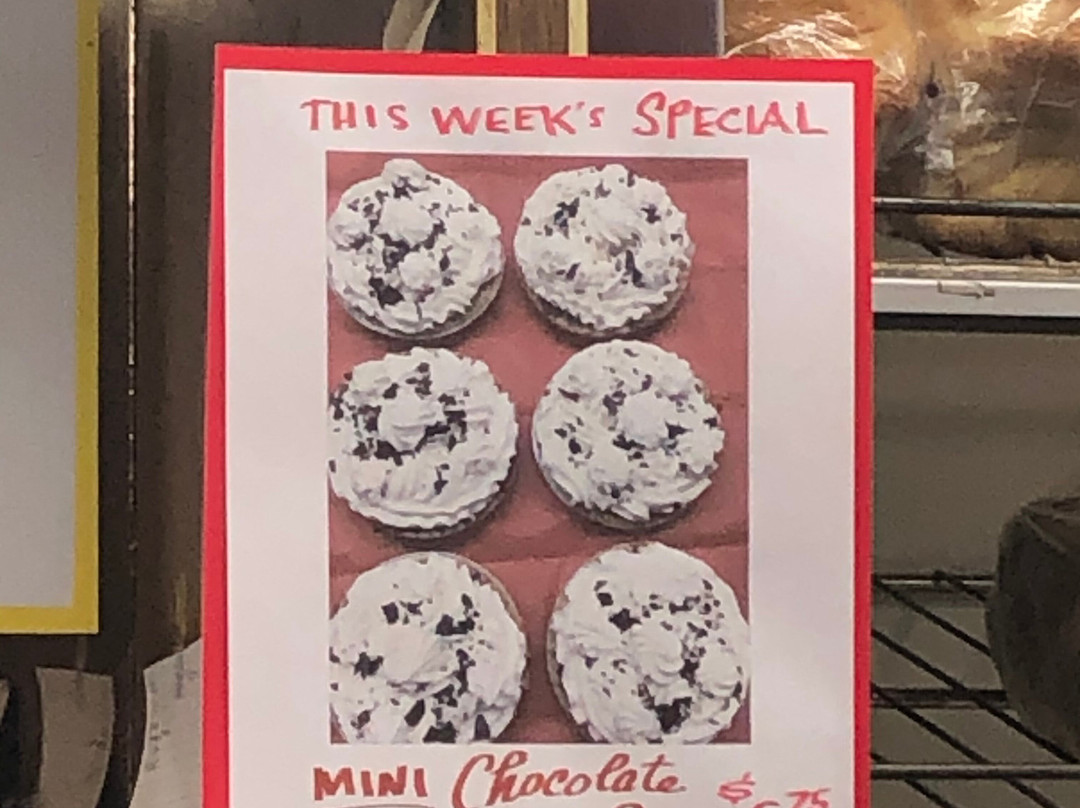 THIS WEEK's SPECIAL
MINI Chocolate $